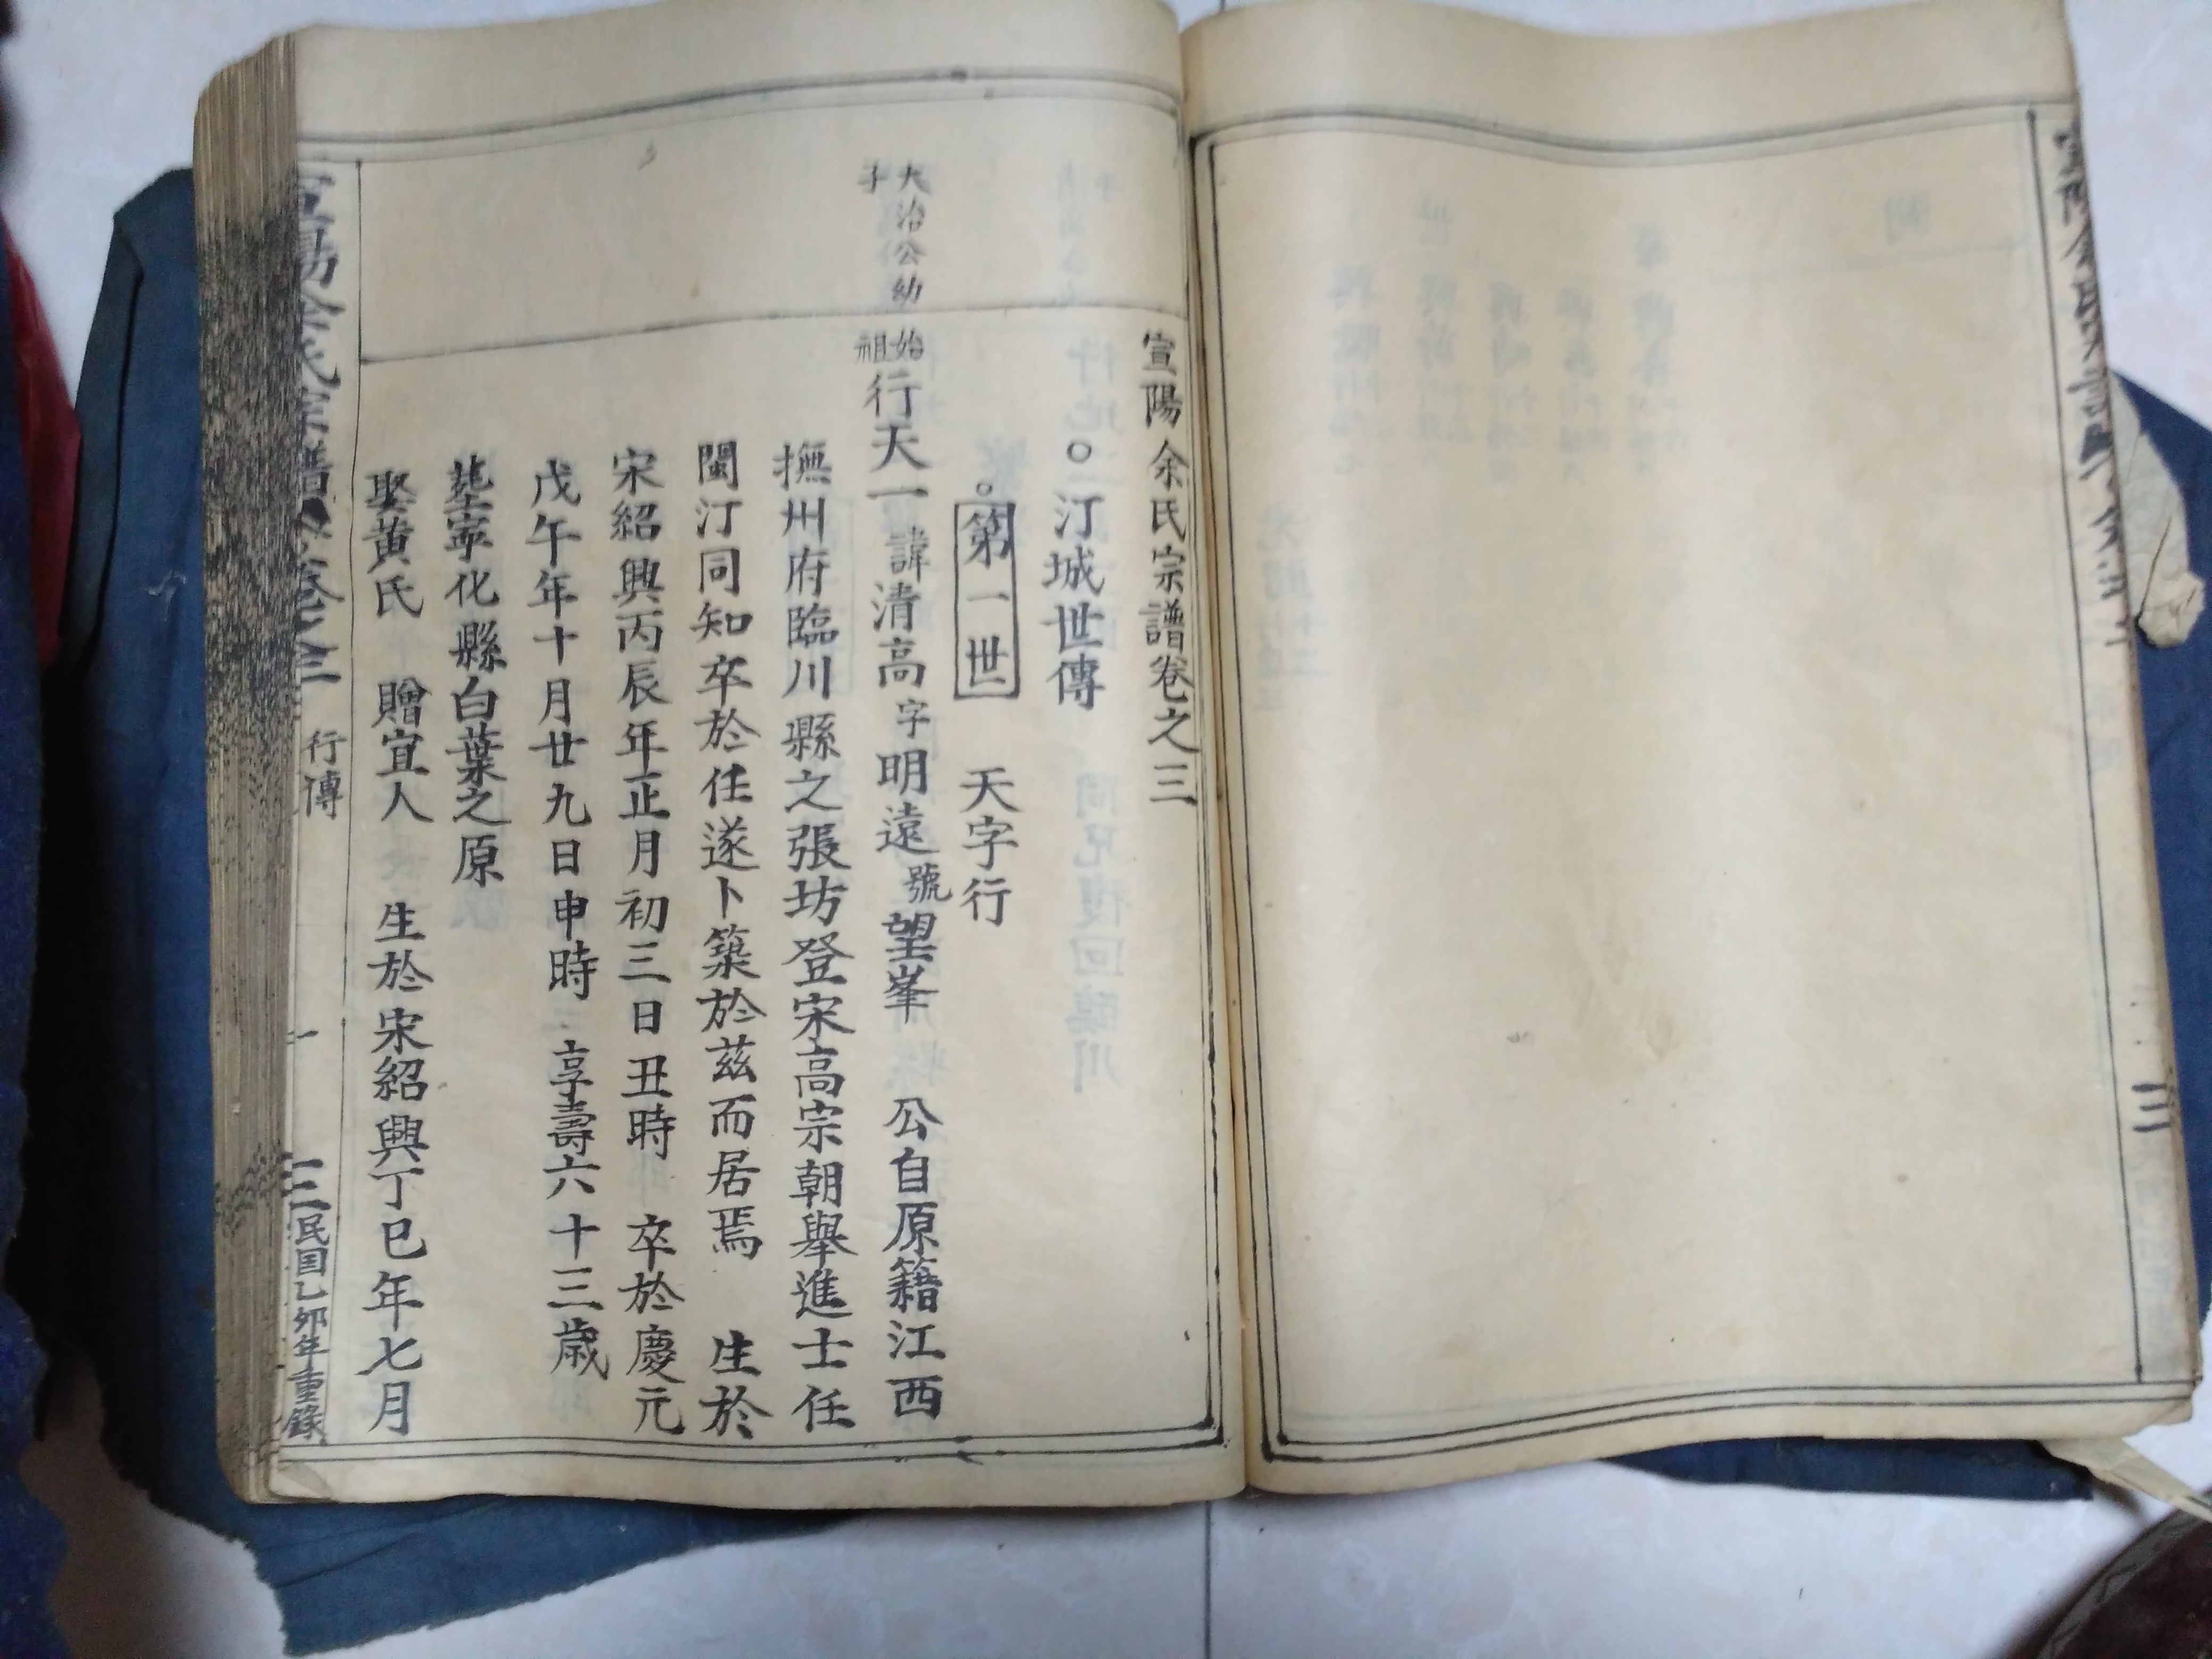 宣陽余氏宗譜卷之三
○汀城世傳
○第一世　天字行
大治公幼
子
始祖
行天一諱清高字明遠號望峯　公自原籍江西
撫州府臨川縣之張坊登宋高宗朝舉進士任
閩汀同知卒於任遂卜築於茲而居焉　生於
宋紹興丙辰年正月初三日丑時　卒於慶元
戊午年十月廿九日申時　享壽六十三歲
塟寧化縣白葉之原
娶黃氏　贈宜人　生於宋紹興丁巳年七月
宣陽余氏宗譜　卷之三　行傳　一　三
民国乙卯年重錄
三